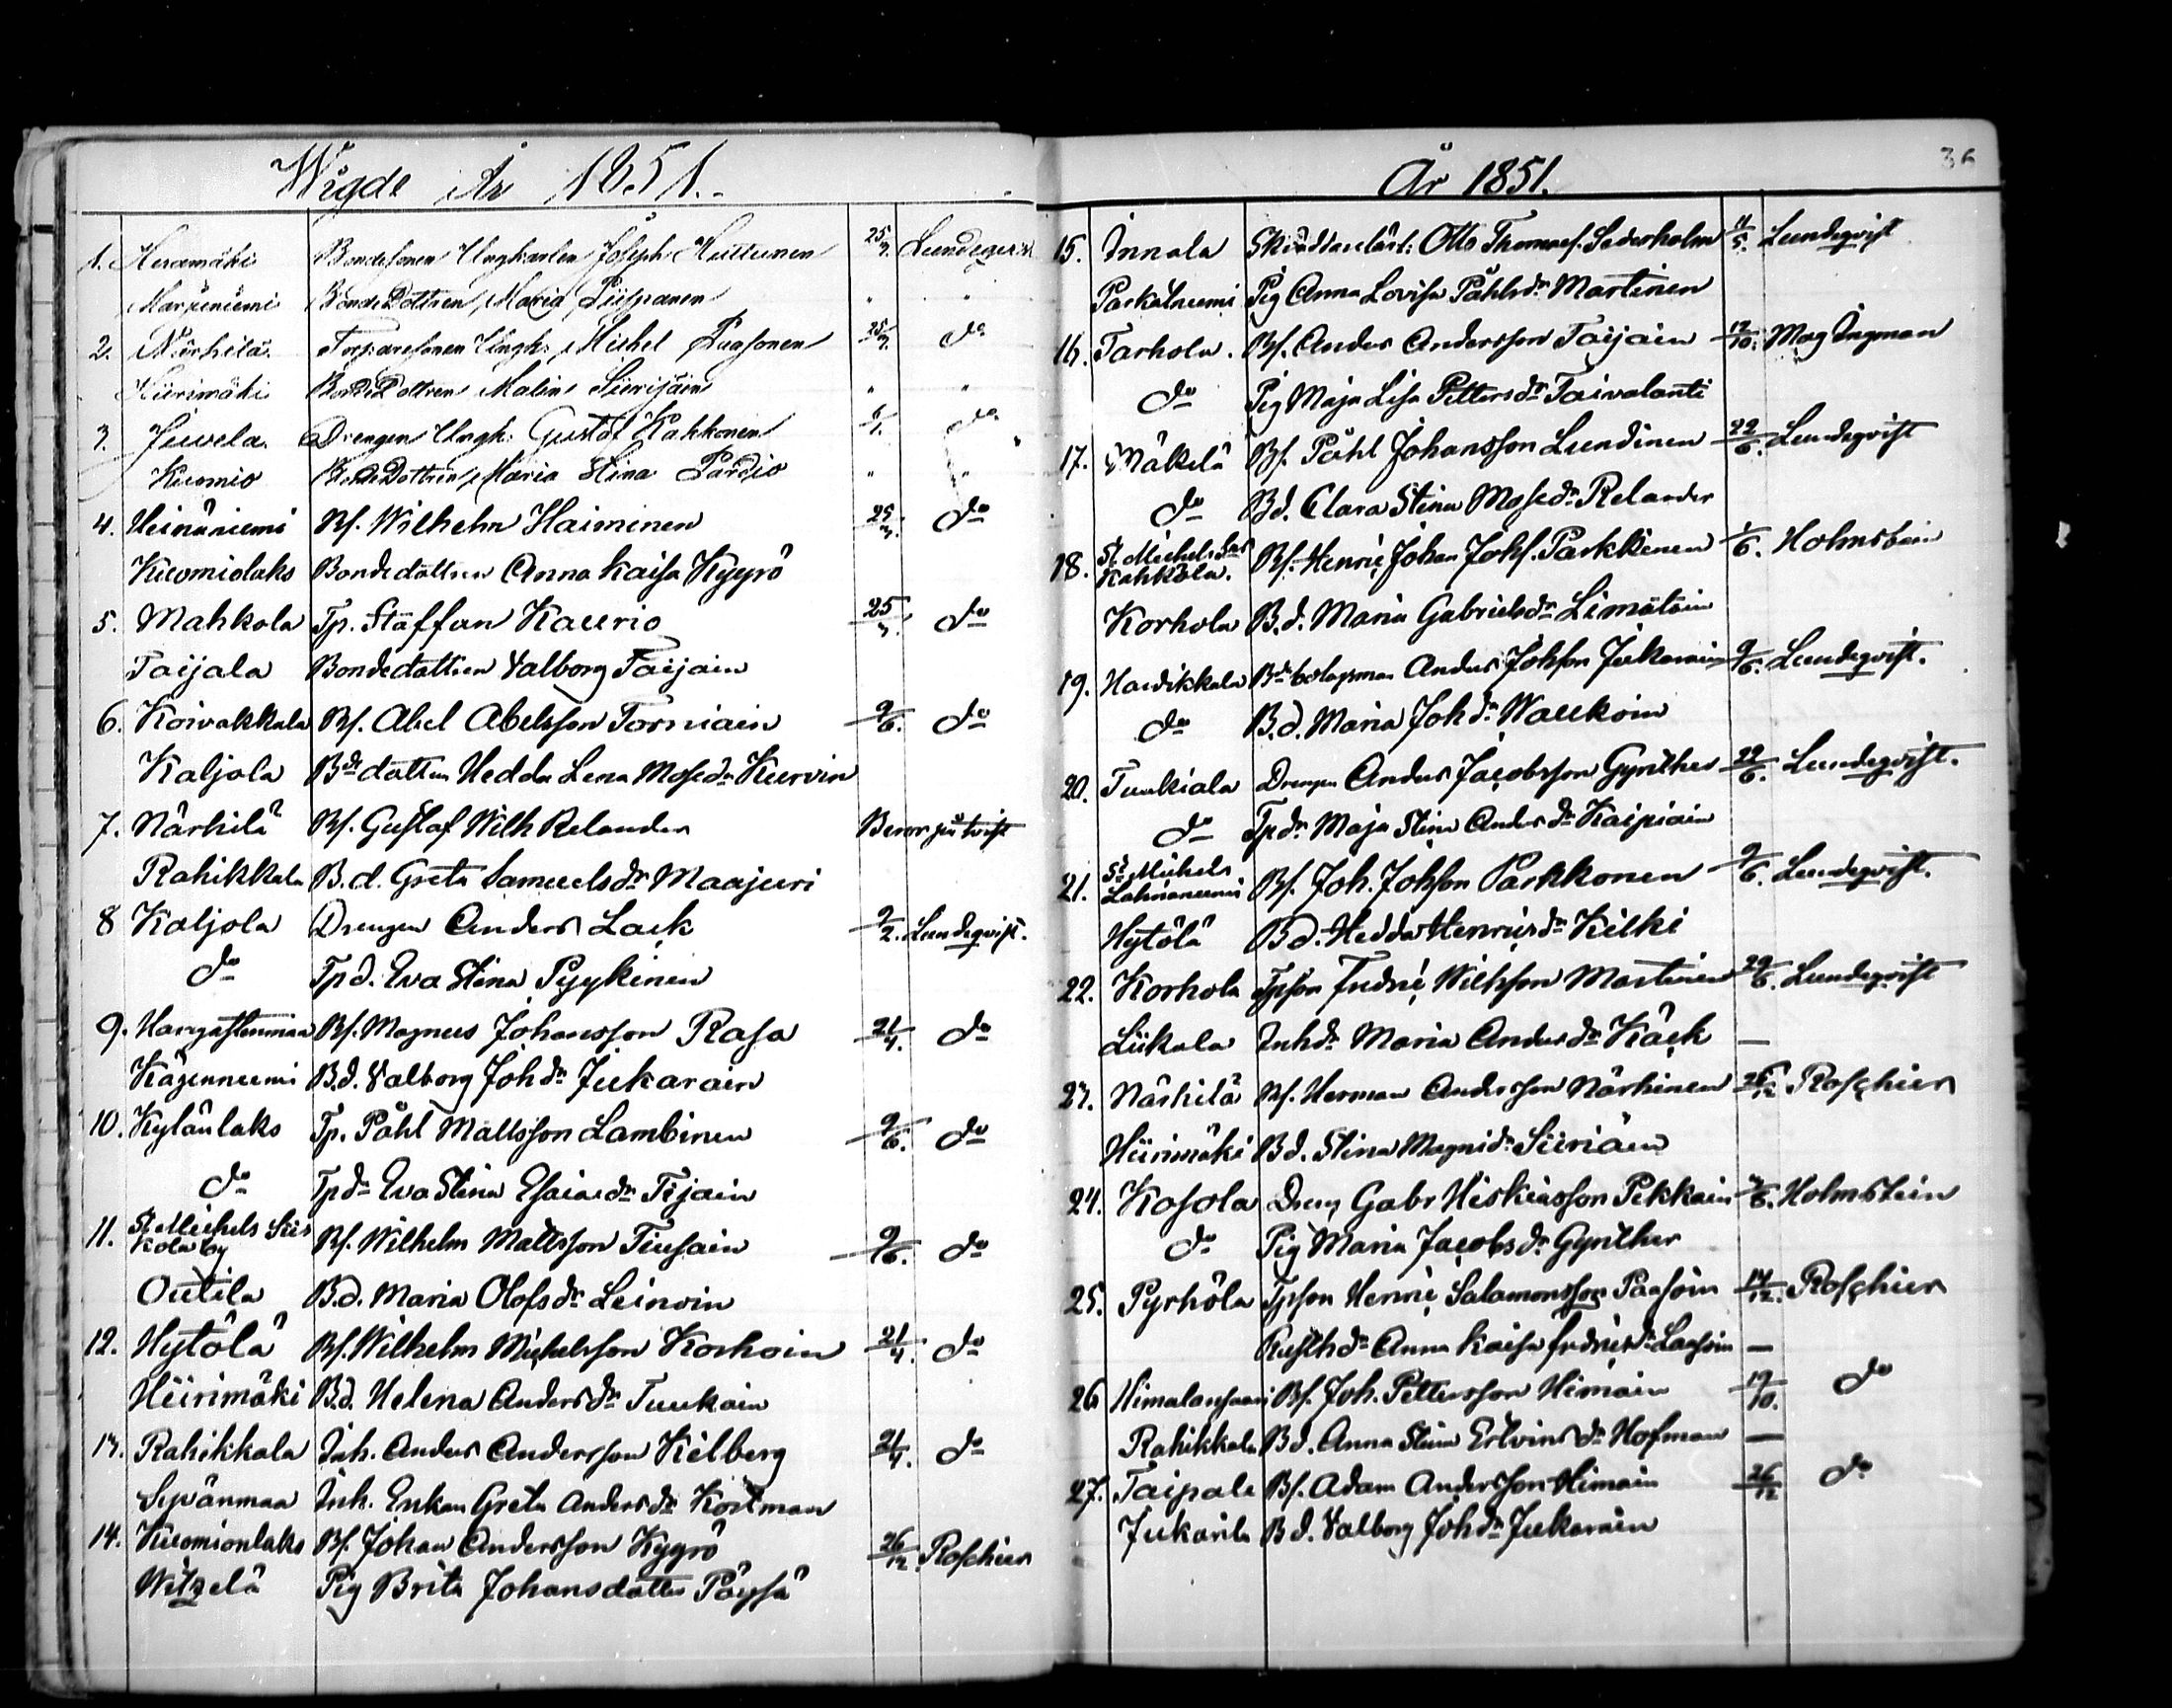 Wigde År 1851.
1. Heramäki Bondesonen Ungkarlen Joseph Huttunen 25/3. Lundeqvist
Marjeniemi BondeDottren Maria Piispanen " "
2. Närhilä Torparesonen Ungk: Michel Paasonen 25/3. do
Hiirimäki BondeDottren Malin Siirijäin " "
3. Juvela Drengen Ungk: Gustaf Kakkonen 6/1. do
Kuomio BondeDottren Maria Stina Pardio " "
4. Heinäniemi Bs. Wilhelm Haiminen 25/3. do
Kuomiolaks Bondedottren Anna Kaisa Kyyrö
5. Mahkola Tp. Staffan Kaurio 25/3. do
Taijala Bondedottren Valborg Taijain
6. Koivakkala Bs. Abel Abelsson Torniain 9/6. do
Kaljola Bde dottren Hedda Lena Mosedr Kurvin
7. Närhilä Bs. Gustaf Wilh Relander Beror på tvist
Rahikkala B.d. Greta Samuelsdr Maajuri
8 Kaljola Drengen Anders Lack 2/2. Lundeqvist.
do Tpd. Eva Stina Pyykinen
9. Hangastenmaa Bs. Magnus Johansson Rasa 21/4. do
Käyenniemi B.d. Valborg Johdr Jukarain
10. Kylänlaks Tp. Påhl Mattsson Lambinen 9/6. do
do Tpdr Eva Stina Esaiaedr Tijain
11. St Michels Siis
kola by Bs. Wilhelm Mattsson Tiusain 9/6. do
Outila B.d. Maria Olofsdr Leinoin
12. Hytölä Bs. Wilhelm Michelsson Korhoin 21/4. do
Hiirimäki B.d. Helena Andersdr Tuukain
13. Rahikkala Inh. Anders Andersson Kilberg 21/4. do
Sepänmaa Inh. Enkan Greta Andersdr Kortman
14. Kuomionlaks Bs. Johan Andersson Kyyrö 26/12. Roschier
Witzelä Pig Brita Johansdotter Pöysä
År 1851. 36
15. Innala Otto Thomass. Sederholm 11/5. Lundeqvist
Parkatniemi Pig Anna Lovisa Påhlsdr Martinen
16. Tarhola. Bs. Anders Andersson Taijain 12/10. Mag Ingman
do Pig Maja Lisa Pettersdr Taivalanti
17. Mäkelä Bs. Påhl Johansson Lundinen 22/6. Lundeqvist
do Bd. Clara Stina Mosedr Relander
18. St Michels
Kahkola. Bs. Henric Johan Johs. Parkkinen 1/6. Holmstein
Korhola B.d. Maria Gabrielsdr Limätäin
19. Haukkala Anders Johsson Jukarain 9/6. Lundeqvist.
do B.d. Maria Johdr Waukoin
20. Tuukiala Drengen Anders Jacobsson Gynther 22/6. Lundeqvist.
do Tpdr Maja Stina Andersdr Kaipiain
21. St Michels
Lahnaniemi Bs. Joh. Johsson Parkkonen 9/6. Lundeqvist.
Hytölä Bd. Hedda Henricsdr Kilki
22. Korhola Tpson Fredric Wilhsson Martinen 29/6. Lundeqvist
Liikala Inhdr Maria Andersdr Käck —
23. Närhilä Bs. Herman Andersson Närhinen 26/12 Roschier
Hiirimäki Bd. Stina Magnidr Siiriäin
24. Kosola Dreng Gabr Hiskiasson Pekkain 1/6. Holmstein
do Pig Maria Jacobsdr Gynther
25. Pyrhölä Tpson Henric Salamonsson Paasoin 14/12. Roschier
Rusthdr Anna Kaisa Fredricsdr Laasoin —
26 Himalansaari Bs. Joh. Pettersson Himain 19/10. do
Rahikkala Bd. Anna Stina Ertvinsdr Hofman —
27. Taipale Bs. Adam Andersson Himain 26/12 do
Jukarila Bd. Valborg Johdr Jukarain